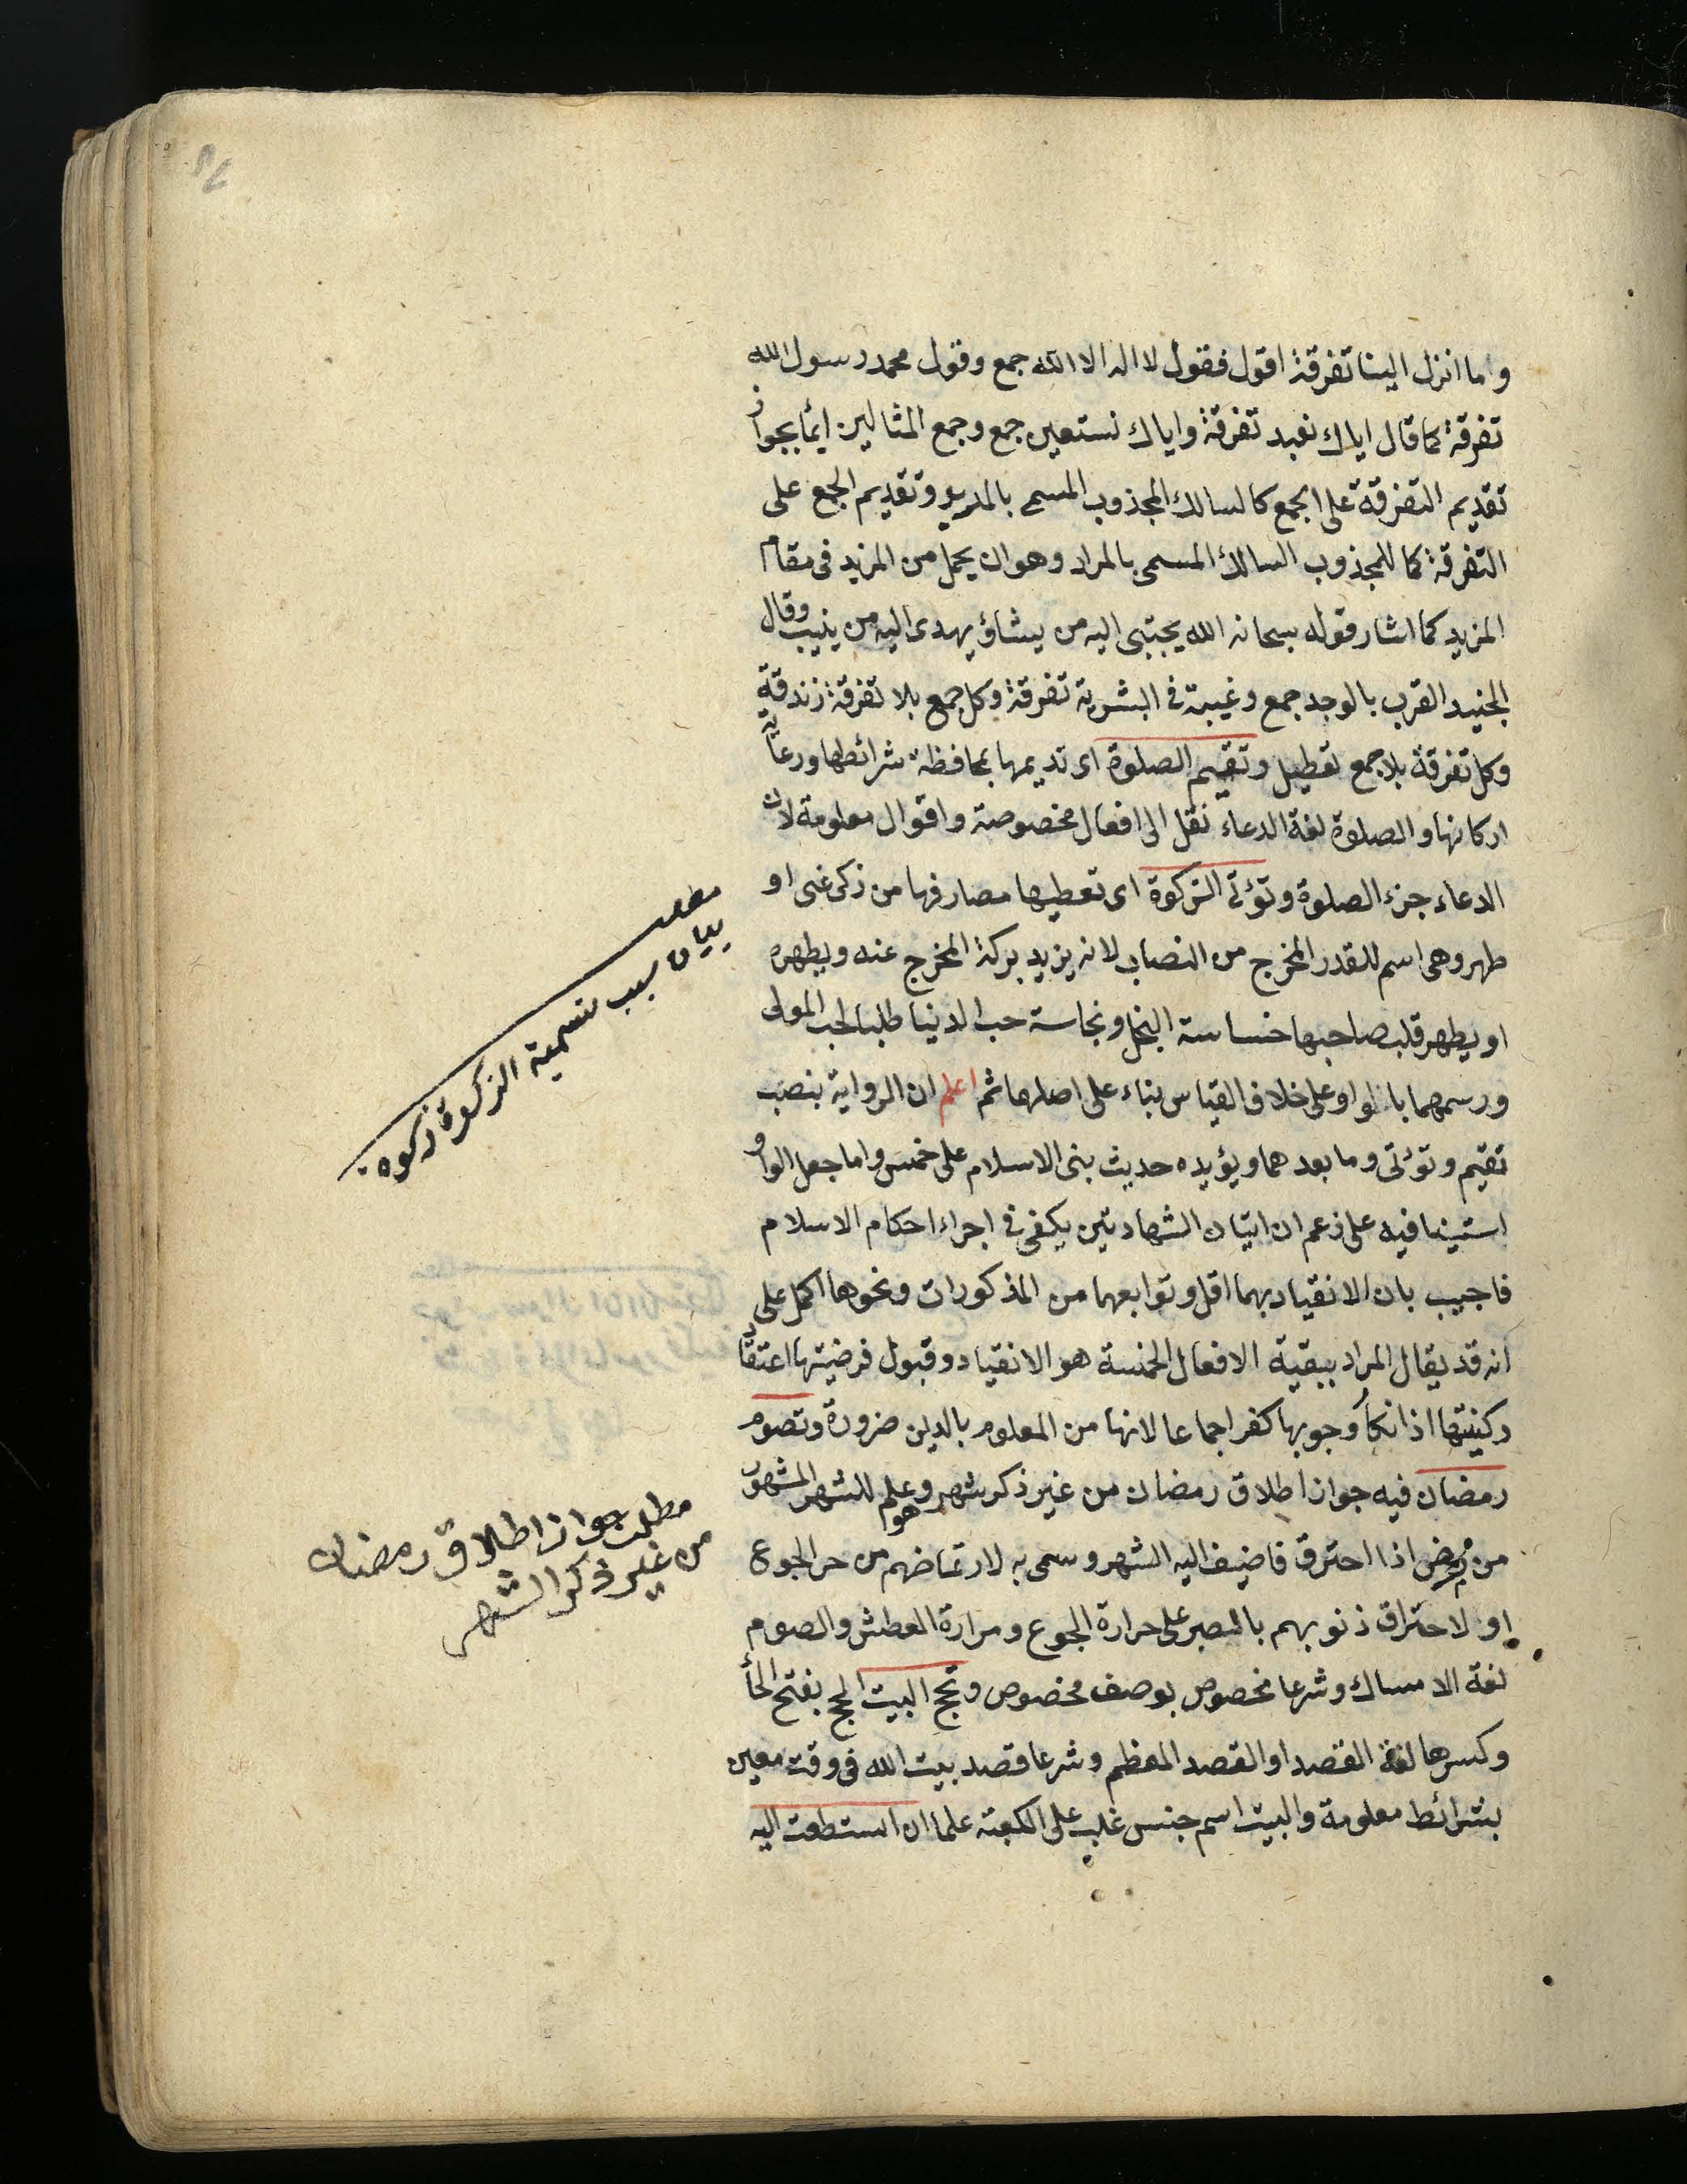 وما انزل الينا تفرقة اقول فقول لا اله الا الله جمع وقول محمد رسول الله
تفرقة كما قال اياك نعبد تفرقة واياك نستعين جمع وجمع المثالين ايماً بجواز
تقديم التفرقة على الجمع كالسالك المجذوب المسمى بالمريد وتقديم الجمع على
التفرقة كما للمجذوب السالك المسمى بالمراد وهو ان يحمل من المزيد فى مقام
المزيد كما اشار قوله سبحانه الله يجتبى اليه من يشاؤ يهدى اليه من ينيب وقال
الجنيد القرب بالوجد جمع وغيبة فى البشرية تفرقة وكل جمع بلا تفرقة زندقة
وكل تفرقة بلا جمع تعطيل وتقيم الصلوة اى تديمها بمحافظة شرائطها ورعاية
اركانها والصلوة لغة الدعاء نقل الى افعال مخصوصة واقوال معلومة لان
الدعاء جزء الصلوة وتؤتى الزكوة اى تعطيها مصارفها من زكى غنى او
طهر وهى اسم للقدر المخرج من النصاب لانه يزيد بركة المخرج عنه ويطهره
او يطهر قلب صاحبها خساسة البخل ونجاسة حب الدنيا طلبا لحب المولى
ورسمهما بالواو على خلاف القياس بناء على اصلها ثم اعلم ان الرواية بنصب
تقيم وتؤتى وما بعدهما ويؤيده حديث بنى الاسلام على خمس واما جعل الواو
استينافيه على زعم ان اتيان الشهادتين يكفى فى اجراء احكام الاسلام
فاجيب بان الانقياد بهما اقل وتوابعهما من المذكورات ونحوها اكمل على
انه قد يقال المراد ببقية الافعال الخمسة هو الانقياد وقبول فرضيتها اعتقاد
ركنيتها اذ انكار وجوبها كفر اجماعا لانها من المعلوم بالدين ضرورة وتصوم
رمضان فيه جواز اطلاق رمضان من غير ذكر شهر وهو علم للشهر المشهور
من رمض اذا احترق فاضيف اليه الشهر وسمى به لارتماضهم من حر الجوع
او لاحتراق ذنوبهم بالصبر على حرارة الجوع ومرارة العطش والصوم
لغة الامساك وشرعا مخصوص بوصف مخصوص وتحج البيت الحج بفتح الحأ
وكسرها لغة القصد او القصد المعظم وشرعا قصد بيت الله فى وقت معين
بشرائط معلومة والبيت اسم جنس غلب على الكعبة علما ان استطعت اليه
مطلب
بيان سبب تسمية الزكوة زكوة
مطلب جواز اطلاق رمضان
من غير ذكر الشهر